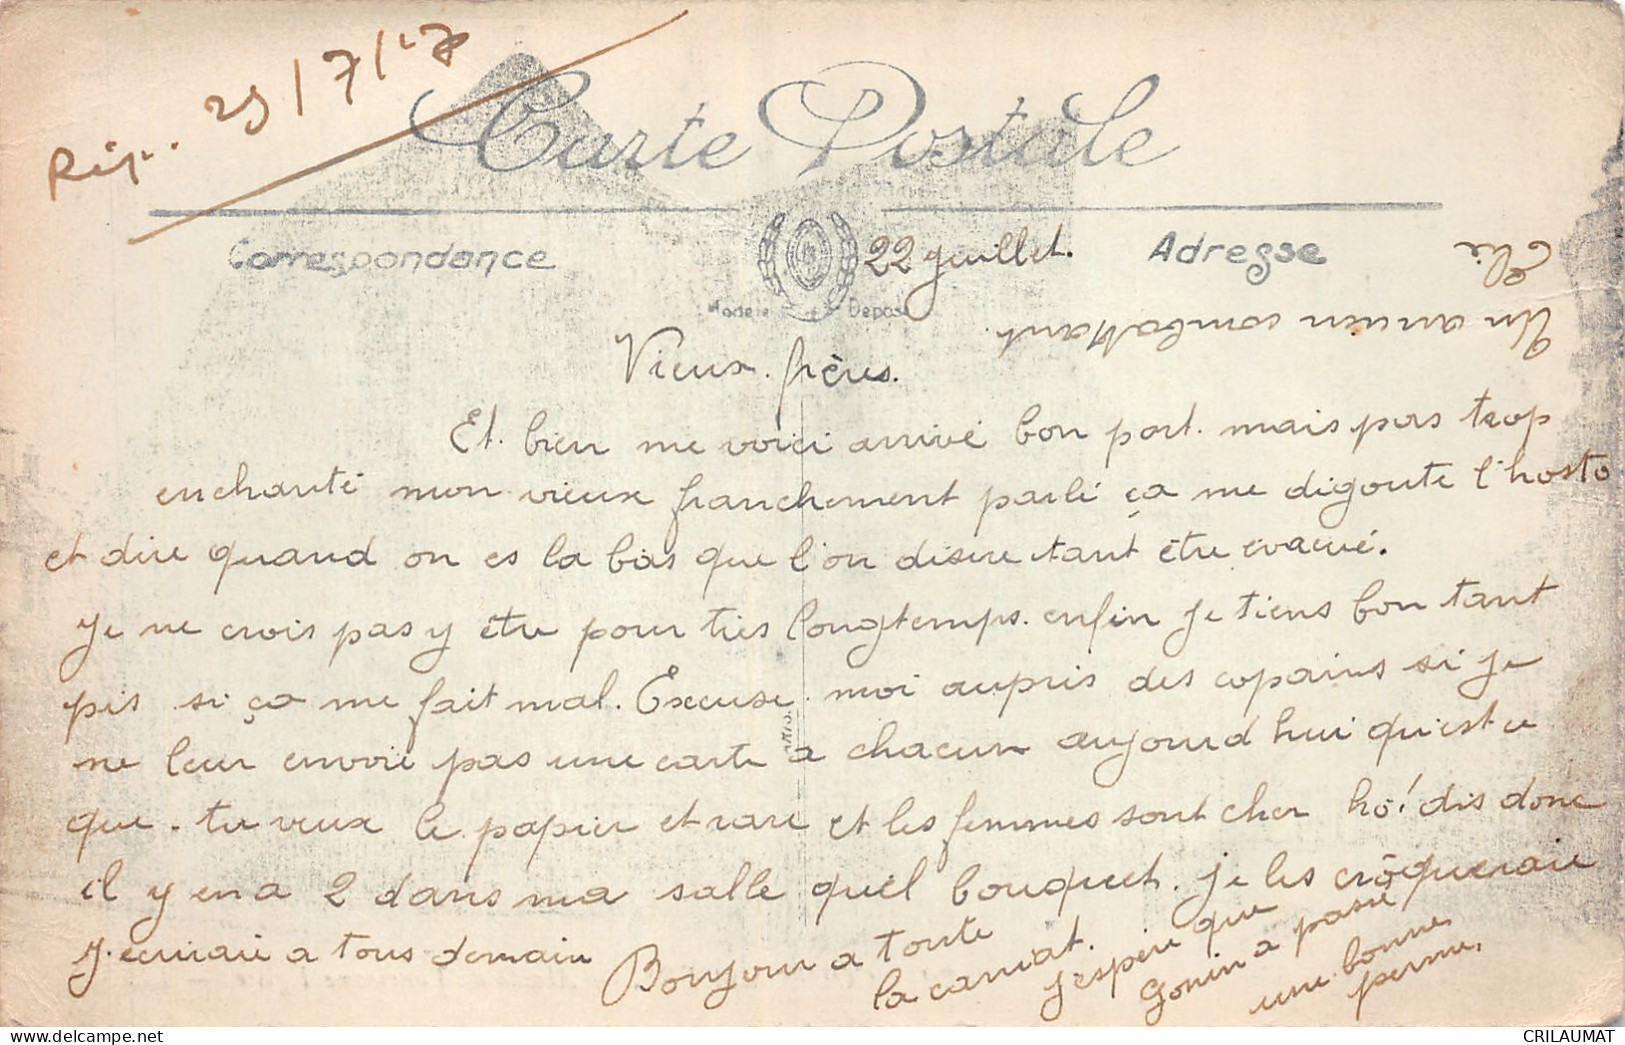 Rép. 29/7/17
Carte Postale
Correspondance
22 juillet.
Adresse
Modèle Déposé
Vieux frères.
Et bien me voici arrivé bon port mais pas trop
enchanté mon vieux franchement parlé ça me digoute l'hosto
et dire quand on es la bas que l'on disire tant être évacué.
Je ne crois pas y être pour très longtemps. enfin je tiens bon tant
pis si ça me fait mal. Excuse moi auprès des copains si je
ne leur envoie pas une carte a chacun aujourd hui qu'est ce
que tu veux le papier et rare et les femmes sont cher ho! dis donc
il y en a 2 dans ma salle quel bouquet. je les croquerais
J'ecrirai a tous demain Bonjour a toute
la carrat. J'espère que
Gonin a passé
une bonne
perme.
Un ancien combattant.
Elie
PARIS
CRILAUMAT